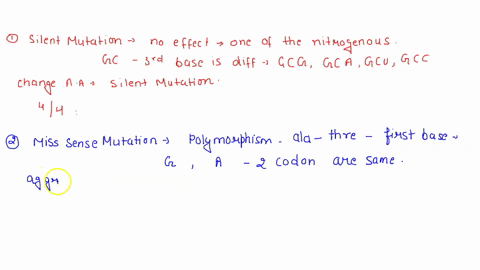 ① Silent Mutation → no effect → one of the nitrogenous.
GC - 3rd base is diff → GCG, GCA, GCU, GCC
change A.A → Silent Mutation.
4/4
② Miss Sense Mutation → Polymorphism. ala - thre - first base.
G, A - 2 codon are same.
aggr